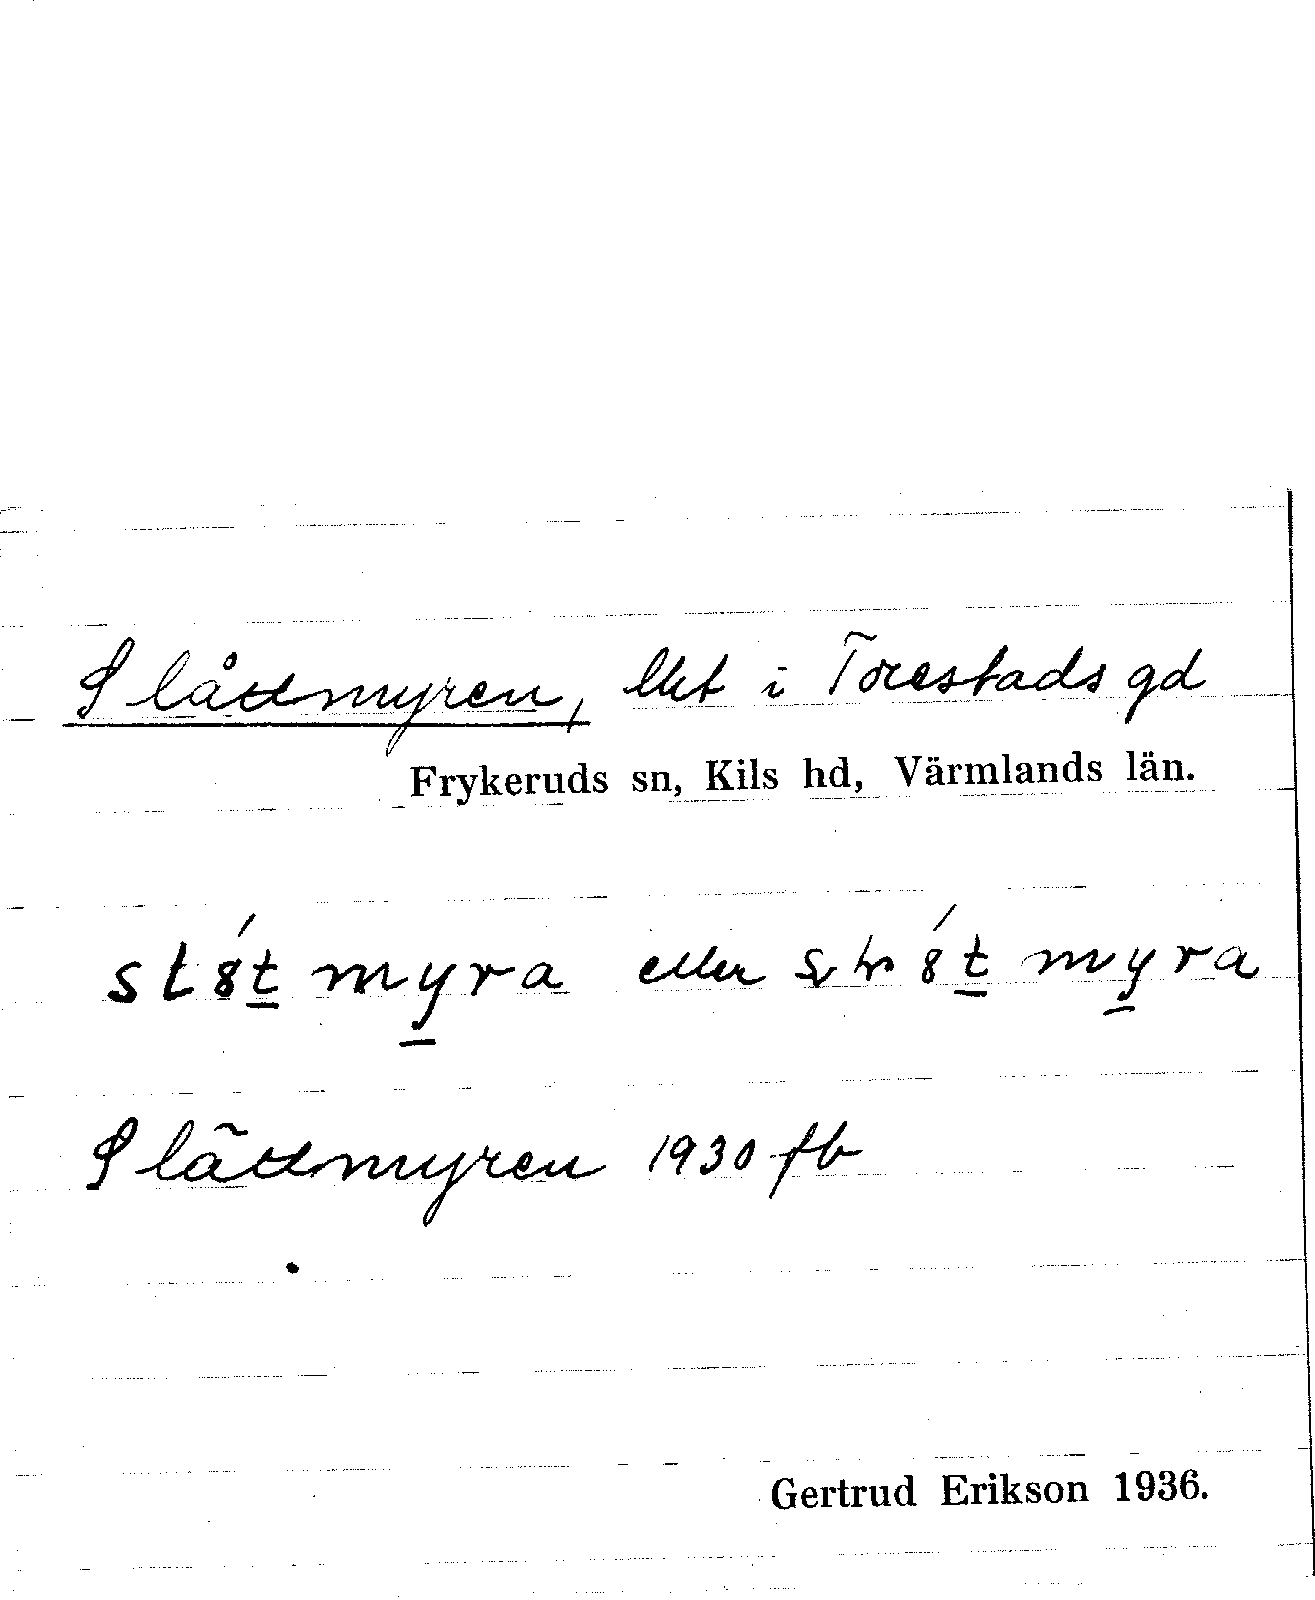 Slåttmyren, lht i Torestads gd
Frykeruds sn, Kils hd, Värmlands län.
eller
Slåttmyren 1930 fb
Gertrud Erikson 1936.